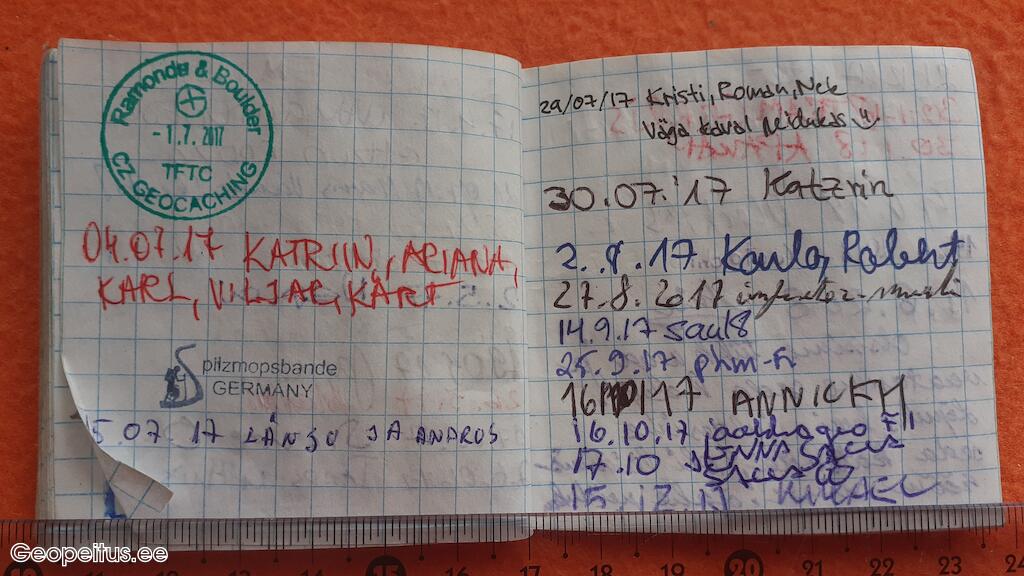 Raimonda & Boulder
- 1. 7. 2017
TFTC
CZ GEOCACHING
04.07.17 KATRIIN, ARIANA,
KARL, VILJAR, KÄRT
Spitzmopsbande
GERMANY
5.07.17 LÄNSU JA ANDROS
29/07/17 Kristi, Roman, Nek
Väga kaval
30.07.'17 Katzrin
2..8.17 Karla, Robert
27.8.2017
14.9.17 saul8
25.9.17 phm-fi
16/10/17 ANNICKY
16.10.17
17.10
15 12 17 MIKAEL
Geopeitus.ee
15
20
21
22
23
24